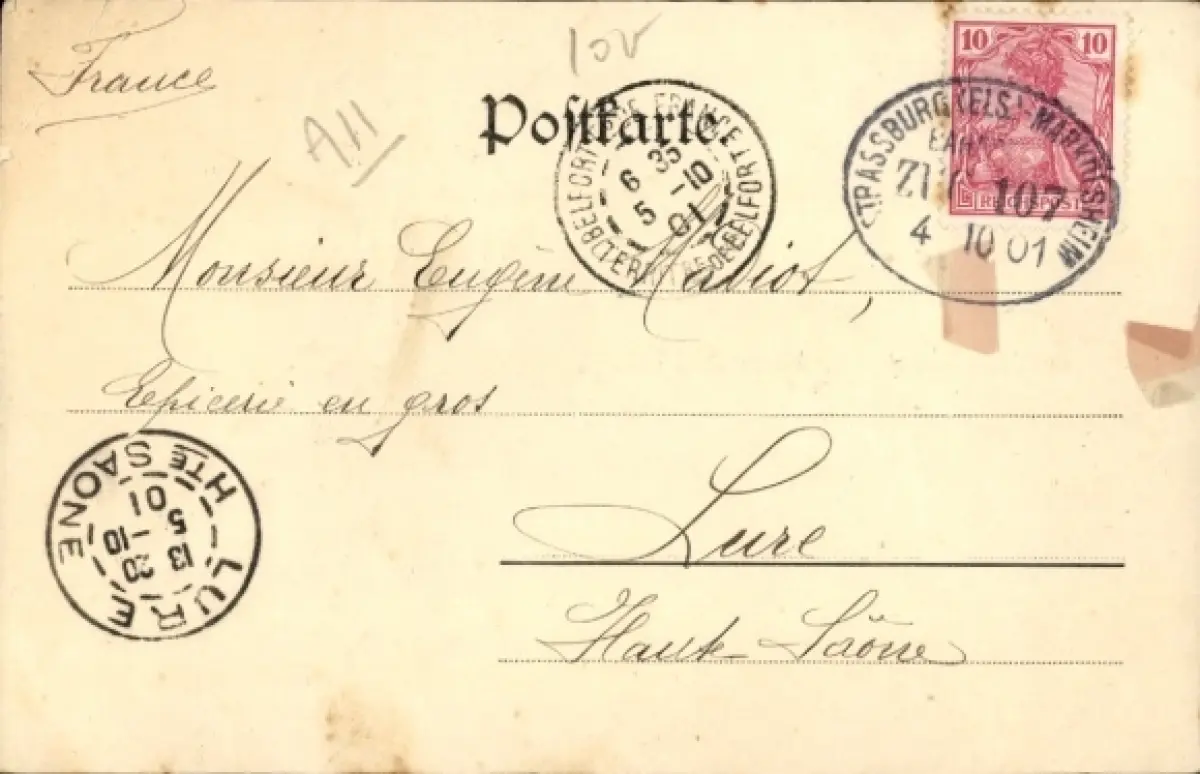 France
A11
Postkarte.
10 10
REICHSPOST
STRASSBURG (ELS.)-MARKOLSHEIM
BAHN
ZUG 107
4 10 01
BELFORT
6 35
5 -10
01
Monsieur Eugène
Epicerie en gros
Lure
Haute-Saône
LURE
HTE SAONE
13 20
5 -10
01